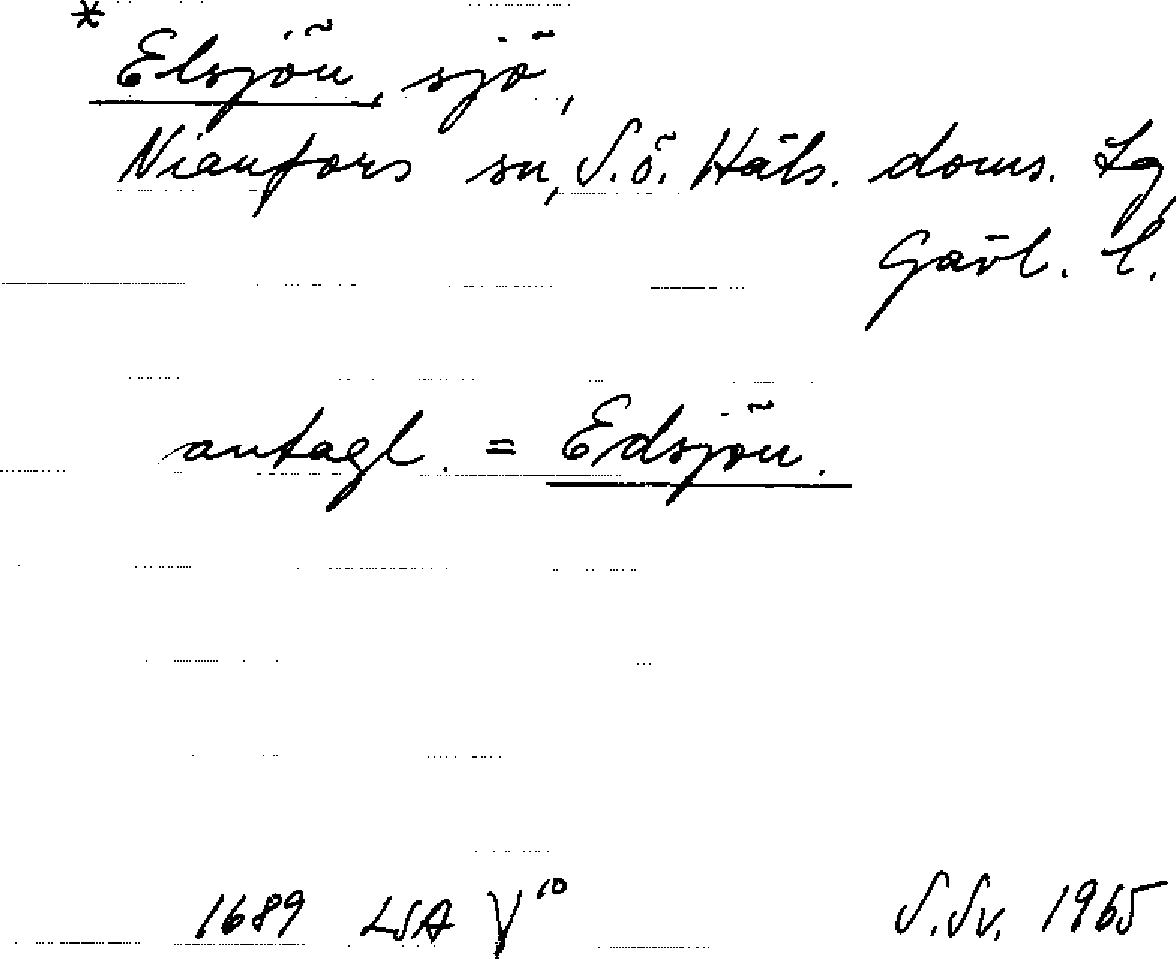 * Elsjön, sjö,
Nianfors sn, S.ö. Häls. doms. Lg,
Gävl. l.
antagl. = Edsjön.
1689 LSA V¹⁰ S.Sv. 1965